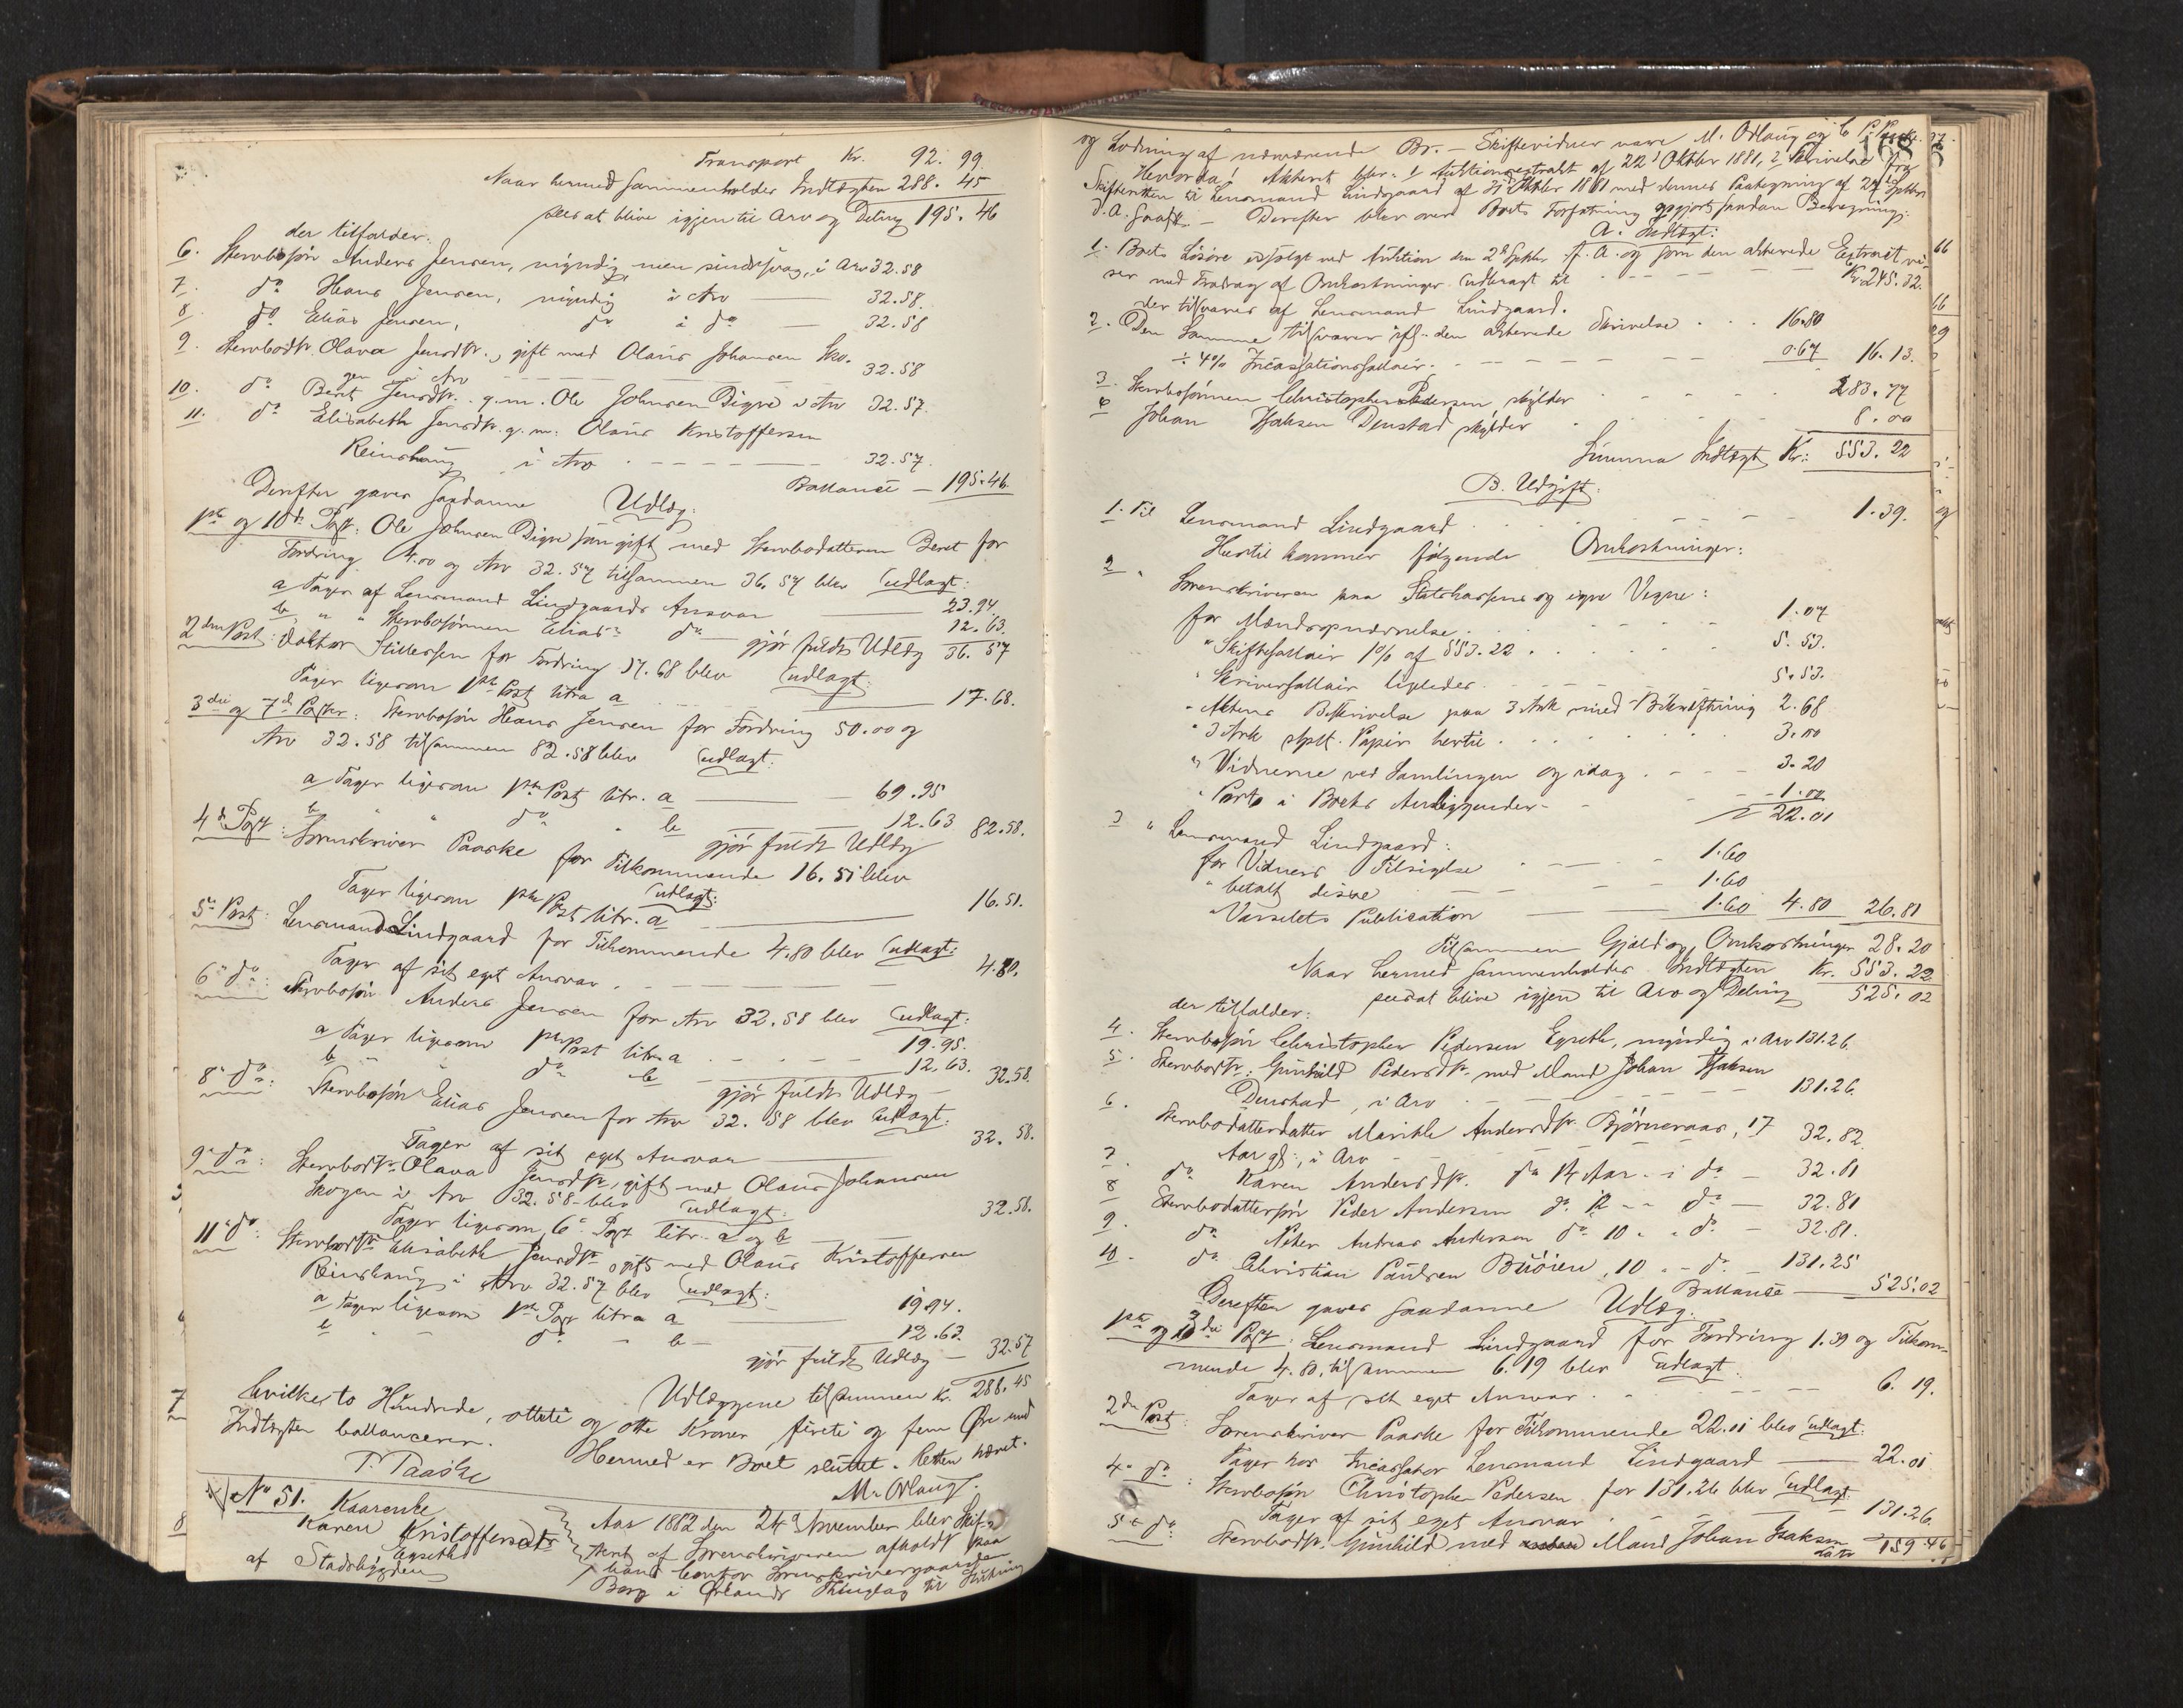 Transport Kr. 92. 99
Naar hermed sammenholdes Indtægten 288. 45
sees at blive igjen til Arv og Deling 195. 46
der tilfalder:
6. Stervbosøn Anders Jensen, myndig men sindssvag, i Arv 32.58
7. do Hans Jensen, myndig i Arv 32.58.
8. do Elias Jensen, do i do 32.58
9. Stervbodtr. Olava Jensdtr., gift med Olaus Johansen Sko-
gen i Arv 32.58
10. do Berit Jensdtr. g. m. Ole Johnsen Digre i Arv 32.57.
11. do Elisabeth Jensdtr. g. m. Olaus Kristoffersen
Reinshaug i Arv 32.57.
Ballance 195.46.
Derefter gaves saadanne Udlæg:
1ste og 10de Post: Ole Johnsen Digre som gift med Stervbodatteren Beret for
Fordring 4.00 og Arv 32.57 tilsammen 36.57 blev udlagt:
a Tager af Lensmand Lindgaards Ansvar 23.94.
b " " Stervbosønnen Elias's do 12.63.
gjør fuldt Udlæg 36.57
2den Post: Doktor for Fordring 17.68 blev udlagt:
Tager ligesom 1ste Post litra a 17.68.
3die og 7de Poster: Stervbosøn Hans Jensen for Fordring 50.00 og
Arv 32.58 tilsammen 82.58 blev udlagt:
a Tager ligesom 1ste Post litr. a 69.95
b " " do " b 12.63 82.58.
gjør fuldt Udlæg
4de Post: Sorenskriver Paaske for Tilkommende 16.51 blev
udlagt:
Tager ligesom 1ste Post litr. a 16.51.
5te Post: Lensmand Lindgaard for Tilkommende 4.80 blev udlagt:
Tager af sit eget Ansvar 4.80.
6te do: Stervbosøn Anders Jensen for Arv 32.58 blev udlagt:
a Tager ligesom 1ste Post litra a 19.95.
b " do b 12.63. 32.58.
gjør fuldt Udlæg
8de do: Stervbosøn Elias Jensen for Arv 32.58 blev udlagt:
Tager af sit eget Ansvar 32.58.
9de do: Stervbodtr. Olava Jensdtr., gift med Olaus Johansen
Skogen i Arv 32.58 blev udlagt:
Tager ligesom 6te Post litr. a og b 32.58.
11te do: Stervbodtr. Elisabeth Jensdtr. gift med Olaus Kristoffersen
Reinshaug i Arv 32.57 blev udlagt:
a Tager ligesom 1ste Post litra a 19.94.
b " do " b 12.63.
gjør fuldt Udlæg 32.57
Udlæggene tilsammen Kr. 288.45
hvilke to Hundrede, otteti og otte Kroner, fireti og fem Øre med
Indtægten ballancerer. Hermed er Boet sluttet. Retten hævet.
T. Paaske M. Ørlaug.
No 51. Kaarenke
Karen Kristoffersdtr
Egseth
af Stadsbygden
Aar 1882 den 24de November blev Skif-
teret af Sorenskriveren afholdt paa
hans Contor Sorenskrivergaarden
Berg i Ørlands Thinglag til Slutning
178
og Lodning af nærværende Bo. – Skiftevidner vare M. Ørlaug og
Henorda! Akteret blev: 1 Auktionsextrakt af 22 Oktbr 1881, 2 Skrivelse fra
Skifteretten til Lensmand Lindgaard af Oktbr 1881 med dennes Paategning af 24de Septbr
d. A. – Derefter blev over Boets Forfatning opgjort saadan Beregning:
A. Indtægt:
1. Boets Løsøre er solgt ved Auktion den Septbr f. A. og som den akterede Extract vi-
ser med Fradrag af Omkostninger udbragt til Kr. 245.32.
der tilsvares af Lensmand Lindgaard.
2. Den Samme tilsvarer ifl. den akterede Skrivelse 16.80
÷ 4% Incassationssallair 0.67 16.13.
3. Stervbosønnen Christopher Pedersen skylder 283.77
4. Johan Isaksen Denstad skylder 8.00
Summa Indtægt Kr: 553.22
B. Udgift:
1. Til Lensmand Lindgaard 1.39.
Hertil kommer følgende Omkostninger:
2 " Sorenskriveren paa Statskassens og egne Vegne:
for Mændsopnævnelse 1.07
" Skiftesallair 1% af 553.22 5.53.
" Skriversallair ligeledes 5.53.
" Aktens Beskrivelse paa 3 Ark med Bekræftning 2.68
" 3 Ark stplt. Papir hertil 3.00
" Vidnerne ved Samlingen og idag 3.20
" Porto i Boets Anliggender 1.00
22.01
3 " Lensmand Lindgaard:
for Vidners Tilsigelse 1.60
" betalt disse 1.60
Varselets Publication 1.60 4.80 26.81
Tilsammen Gjæld og Omkostninger 28.20
Naar hermed sammenholdes Indtægten Kr. 553.22
sees at blive igjen til Arv og Deling 525.02
der tilfalder:
4. Stervbosøn Christopher Pedersen Egseth, myndig i Arv 131.26.
5. Stervbodtr.: Gunhild Pedersdtr. med Mand Johan Isaksen
Denstad, i Arv 131.26.
6. Stervbodatterdatter Marithe Andersdtr. Bjørneraas, 17
Aar gl., i Arv 32.82
7. do Karen Andersdtr. do 14 Aar i do 32.81
8 Stervbodattersøn Peder Andersen do 12 " " do 32.81
9. do Peter Andreas Andersen do 10 " " do 32.81.
10. do Christian Paulsen Buøien, 10 " " do 131.25
Ballance 525.02
Derefter gaves saadanne Udlæg:
1ste og 3die Post: Lensmand Lindgaard for Fordring 1.39 og Tilkom-
mende 4.80, tilsammen 6.19 blev udlagt:
Tager af sit eget Ansvar 6.19.
2den Post: Sorenskriver Paaske for Tilkommende 22.01 blev udlagt:
Tager hos Incassator Lensmand Lindgaard 22.01
4de do: Stervbosøn Christopher Pedersen for 131.26 blev udlagt:
Tager af sit eget Ansvar 131.26.
5te do: Stervbodtr. Gunhild med Mand Johan Isaksen
Latr 159.46